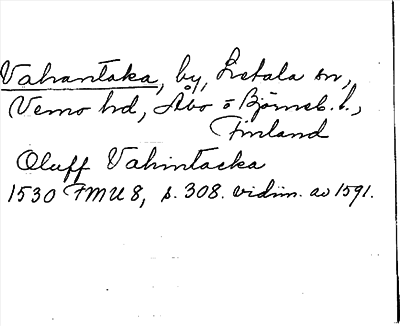 Vahantaka, by, Letala sn,
Vemo hd, Åbo o Björneb. l.,
Finland
Oluff Vahintacka
1530 FMU 8, s. 308. vidim. av 1591.